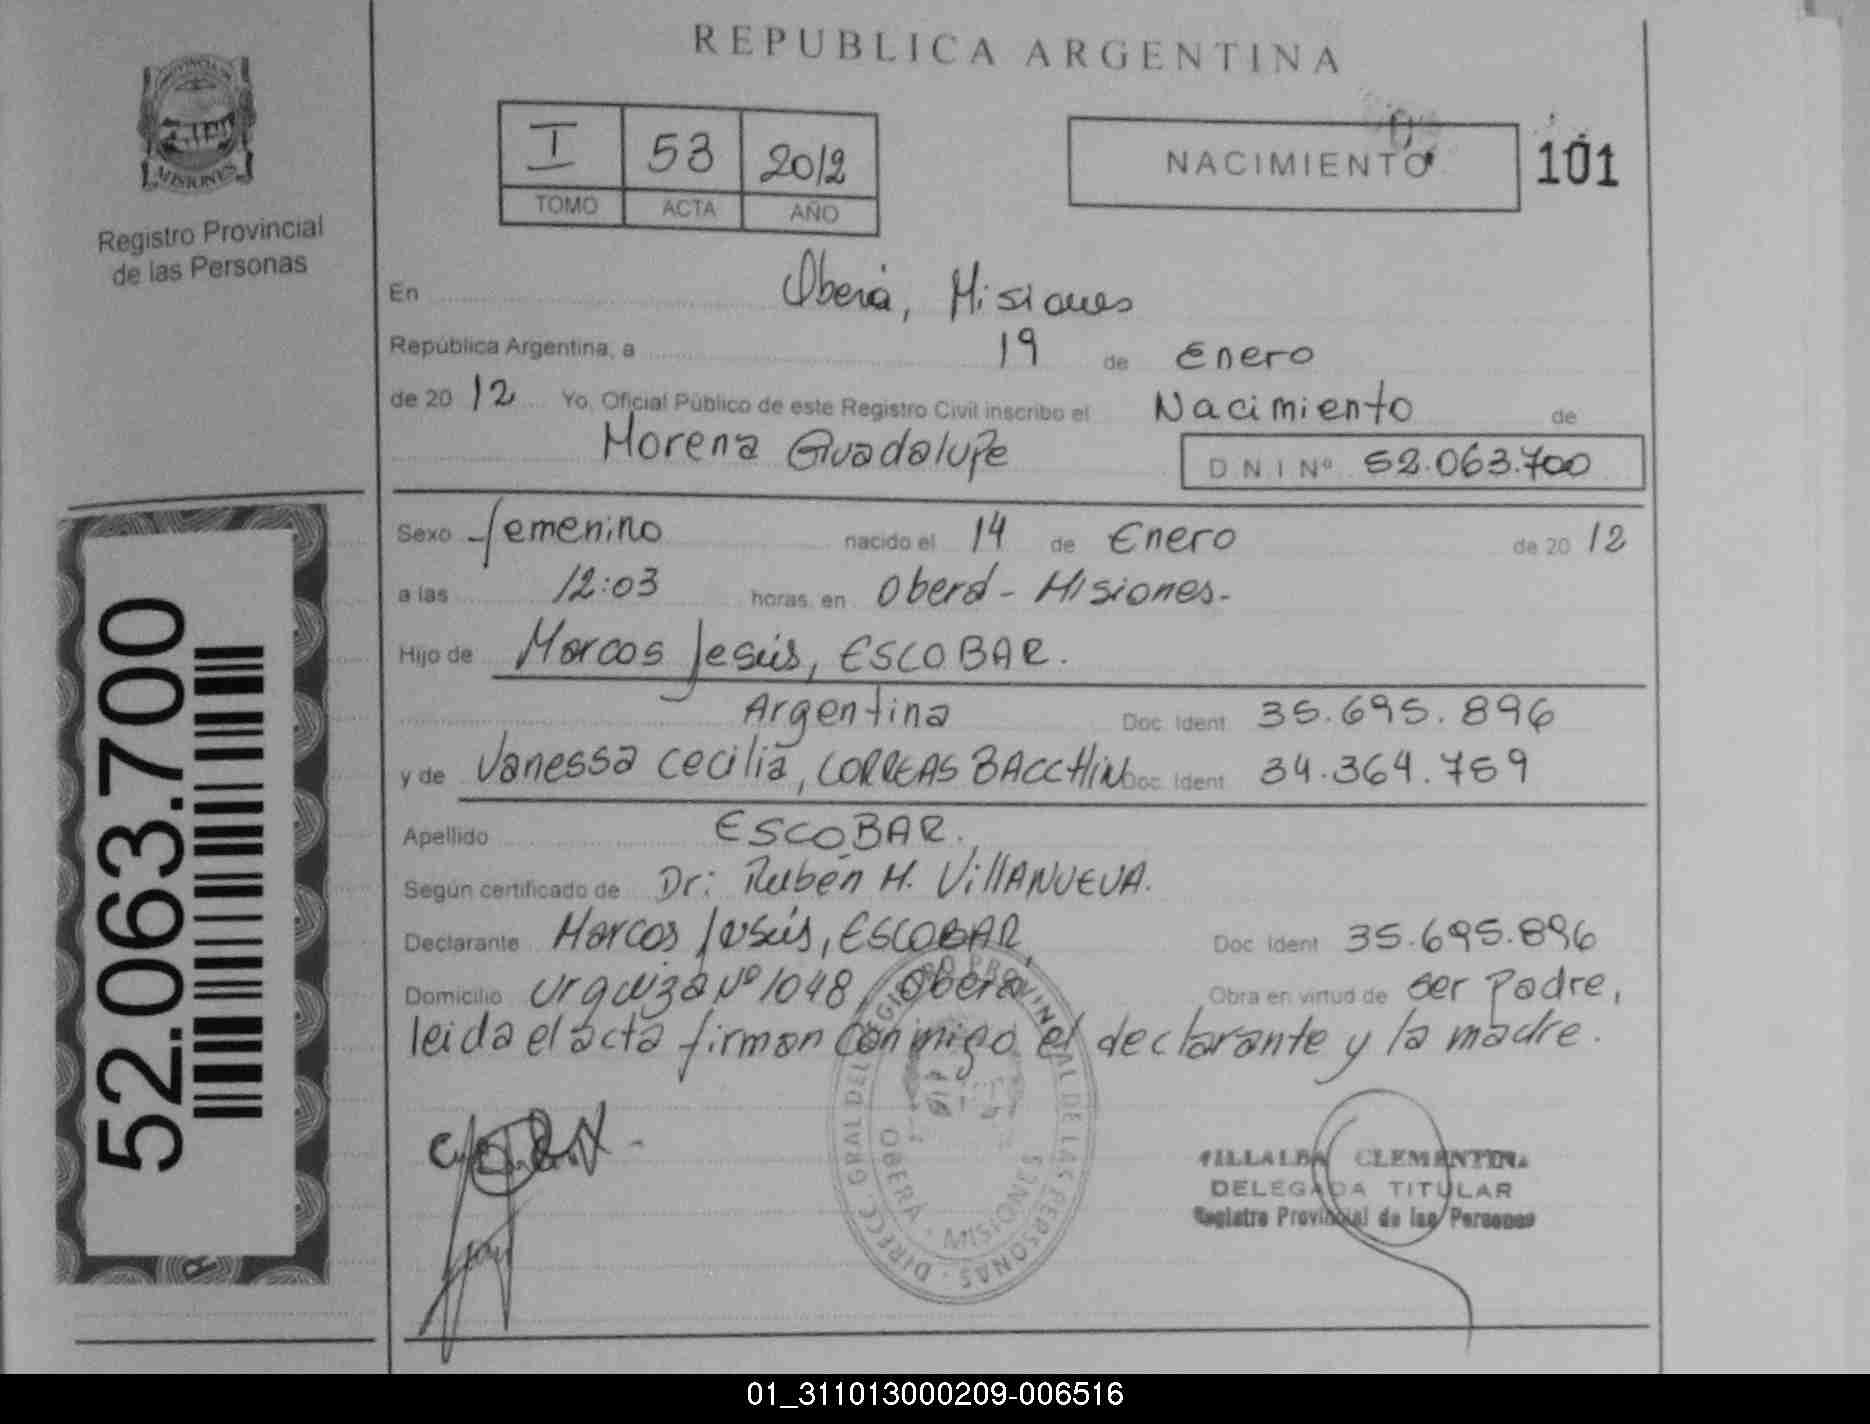 REPUBLICA ARGENTINA
PROVINCIA DE
MISIONES
Registro Provincial
de las Personas
I 53 2012
TOMO ACTA AÑO
NACIMIENTO
101
En Oberá, Misiones
República Argentina, a 19 de Enero
de 2012 Yo, Oficial Público de este Registro Civil inscribo el Nacimiento de
Morena Guadalupe
D N I Nº 52.063.700
Sexo femenino nacido el 14 de Enero de 2012
a las 12:03 horas, en Oberá - Misiones.-
Hijo de Marcos Jesús, ESCOBAR.
Argentina Doc. Ident. 35.695.896
y de Vanessa Cecilia, CORREAS BACCHIN Doc. Ident. 34.364.759
Apellido ESCOBAR.
Según certificado de Dr: Rubén H. VillANUEVA.
Declarante Marcos Jesús, ESCOBAR, Doc. Ident. 35.695.896
Domicilio Urquiza Nº 1048, Oberá, Obra en virtud de ser Padre,
leida el acta firman conmigo el declarante y la madre.
52.063.700
DIRECC. GRAL DEL REGISTRO PROVINCIAL DE LAS PERSONAS
OBERÁ - MISIONES
VILLALBA CLEMENTINA
DELEGADA TITULAR
Registro Provincial de las Personas
01_311013000209-006516